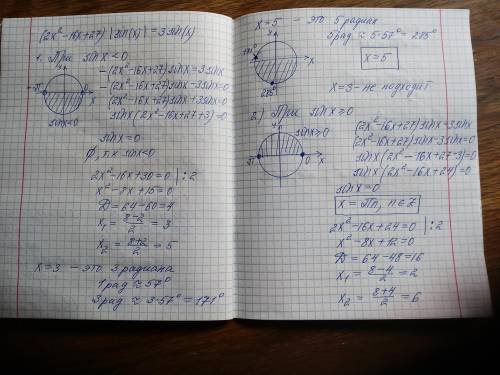 (2x²-16x+27) |sin(x)| = 3sin(x)
1. При sinx<0
-(2x²-16x+27)sinx=3sinx
-(2x²-16x+27)sinx-3sinx=0
(2x²-16x+27)sinx+3sinx=0
sinx(2x²-16x+27+3)=0
-π
0
x
sinx<0
sinx=0
∅, т.к sinx<0
2x²-16x+30=0 | :2
x²-8x+15=0
D=64-60=4
x₁ = (8-2)/2 = 3
x₂ = (8+2)/2 = 5
x=3 - это 3 радиана
1 рад ≈ 57°
3 рад ≈ 3·57° = 171°
x=5 - это 5 радиан
5 рад ≈ 5·57° = 285°
x
285°
x=5
x=3 - не подходит
2.) При sinx≥0
sinx≥0
π
0
x
(2x²-16x+27)sinx=3sinx
(2x²-16x+27)sinx-3sinx=0
sinx(2x²-16x+27-3)=0
sinx(2x²-16x+24)=0
sinx=0
x=πn, n∈Z
2x²-16x+24=0 | :2
x²-8x+12=0
D=64-48=16
x₁ = (8-4)/2 = 2
x₂ = (8+4)/2 = 6